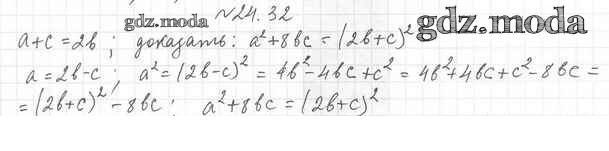 gdz.moda №24.32 gdz.moda
a+c=2b; доказать: a²+8bc=(2b+c)²
a=2b-c; a²=(2b-c)²=4b²-4bc+c²=4b²+4bc+c²-8bc=
=(2b+c)²-8bc; a²+8bc=(2b+c)²